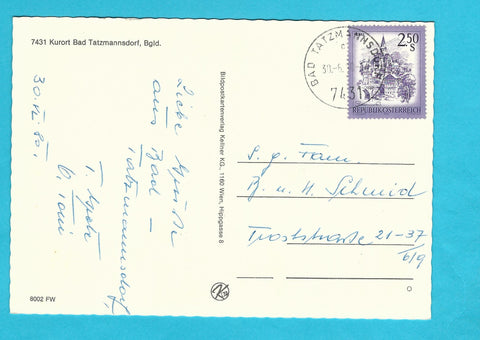 7431 Kurort Bad Tatzmannsdorf, Bgld.
30.VI.80.
Liebe
aus Bad -
Tatzmannsdorf,
T.
Toni
6002 FW
Bildpostkartenverlag Kellner KG., 1160 Wien, Hippgasse 8
BAD TATZMANNSDORF
7431
2.50
S
REPUBLIK ÖSTERREICH
S. g. Fam.
u. H. Schmid
Troststrasse 21-37
6/9